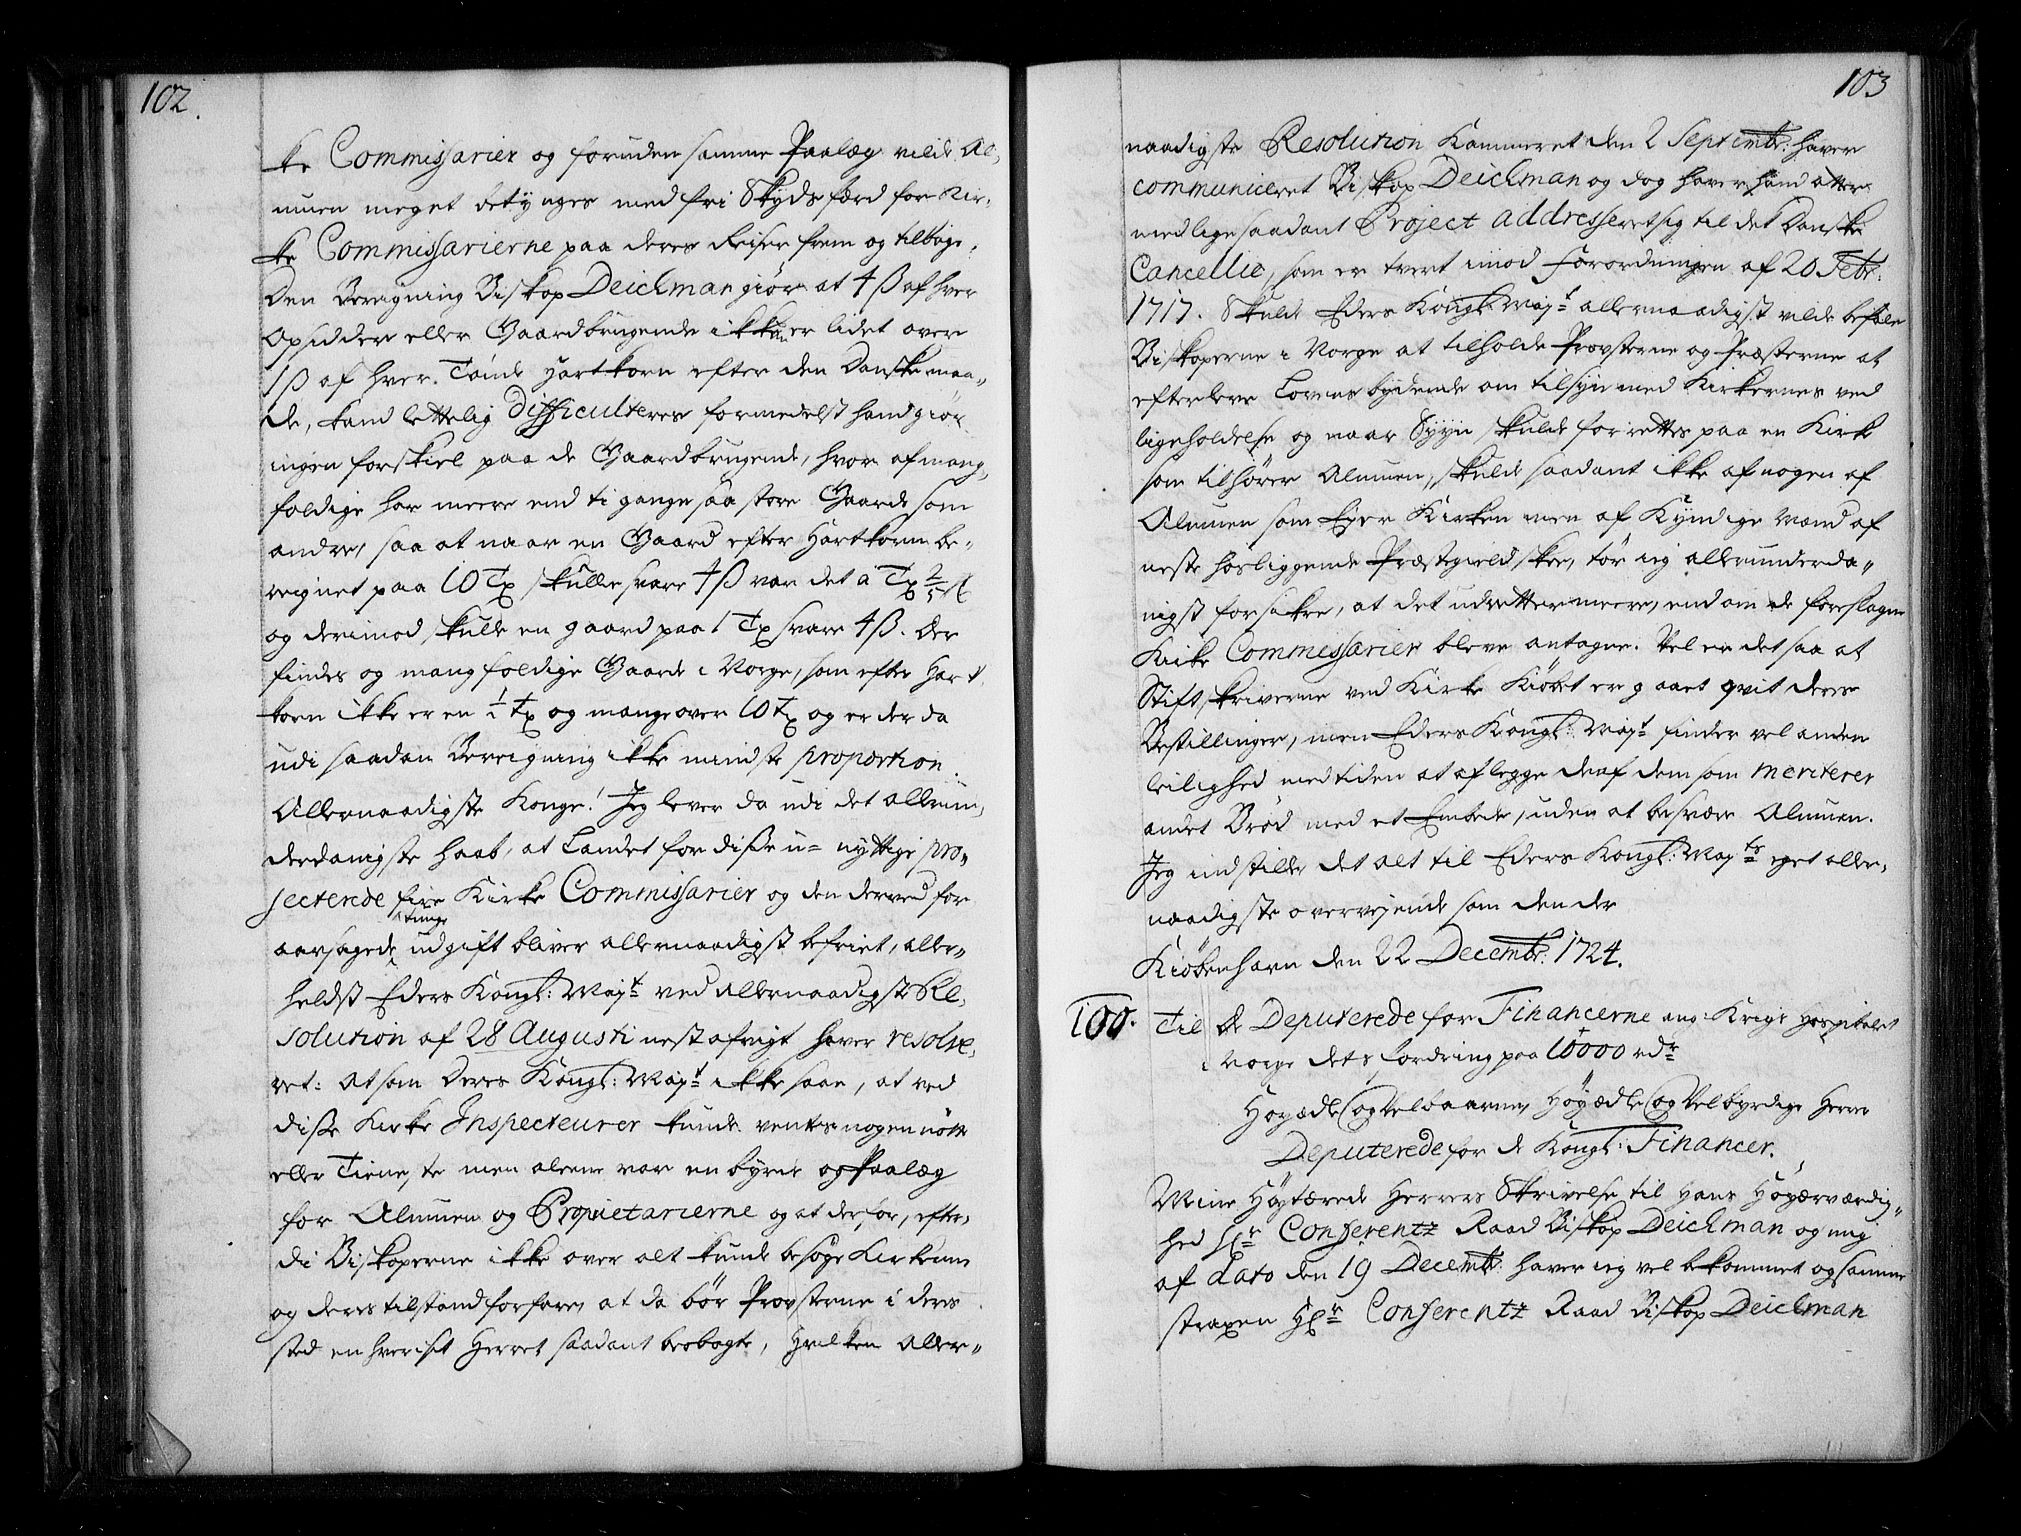 102.
ke Commissarier og foruden samme Paalæg vilde Al-
muen meget betynges med fri Skydsfærd for Kir-
ke Commissarierne paa deres Reiser frem og tilbage.
Den Beregning Biskop Deichman giør at 4 ß af hver
Opsidder eller Gaardbrugende ikkun er lidet over
1 ß af hver Tønde Hartkorn efter den Danske maa-
de, kand lettelig difficulteres formedelst hand giør
ingen forskiel paa de Gaardbrugende, hvor af mang-
foldige har meere end ti gange saa store Gaarde som
andre, saa at naar en Gaard efter Hartkorn be-
reignet paa 10 Tr skulle svare 4 ß var det a Tr 2/5 ß
og derimod skulde en gaard paa 1 Tr svare 4 ß. Der
findes og mangfoldige Gaarde i Norge, som efter Hart
korn ikke er en 1/2 Tr og mange over 10 Tr og er der da
udi saadan Bereigning ikke mindste proportion.
Allernaadigste Konge! Jeg lever da udi det allerun-
derdanigste haab, at Landet for disse u-nyttige pro-
jecterede fire Kirke Commissarier og den derved for
aarsagede tunge udgift bliver allernaadigst befriet, aller-
heldst Eders Kongl: Mayt ved allernaadigste Re-
solution af 28 Augusti nest afvigt haver resolve-
ret: At som Deres Kongl: Mayt ikke saae, at ved
disse Kirke Inspecteurer kunde ventes nogen nøtte
eller Tieneste men aleene var en byrde og Paalæg
for Almuen og Proprietarierne og at derfor, efter-
di Biskoperne ikke over alt kunde besøge Kirkerne
og deres tilstand forfare, at da bør Provsterne i deres
sted en hver i sit Herret saadant beobagte, Hvilken Aller-
103
naadigste Resolution Kammeret den 2 Septembr: haver
communiceret Biskop Deichman og dog haver hand atter
med lige saadant Project addresseret sig til det Danske
Cancellie, som er tvert imod Forordningen af 20 Febr:
1717. Skulde Eders Kongl: Mayt allernaadigst vilde befale
Biskoperne i Norge at tilholde Provsterne og Præsterne at
efterleve Lovens bydende om tilsyn med Kirkernes ved
ligeholdelse og naar Syyn skulde forrettes paa en Kirke
som tilhører Almuen, skulde saadant ikke af nogen af
Almuen som Ejer Kirken men af Kyndige Mænd af
neste hosliggende Præstegield skee, tør ieg allerunderda-
nigst forsikre, at det udretter meere, end om de foreslagne
Kirke Commissarier bleve antagne. Vel er det saa at
Stiftskriverne ved Kirke Kiøbet er gaaet qvit deres
Bestillinger, men Eders Kongl: Mayt finder vel anden
leilighed med tiden at aflegge de af dem som meriterer
andet Brød med et Embede, uden at besvære Almuen.
Jeg indstiller det alt til Eders Kongl: Mayts eget aller-
naadigste overvejende som den der
Kiøbenhavn den 22 Decembr: 1724.
100. Til De Deputerede for Financerne ang: Krigs Hospitalet
i Norge dets fordring paa 10000 rdr
Høyædle og Velbaarne, Høyædle og Velbyrdige Herrer
Deputerede for de Kongl: Financer.
Mine Høytærede Herrers Skrivelse til Hans Høyærværdig-
hed Hr Conferentz Raad Biskop Deichman og mig
af dato den 19 Decembr: haver ieg vel bekommet og samme
straxen Hr Conferentz Raad Biskop Deichman